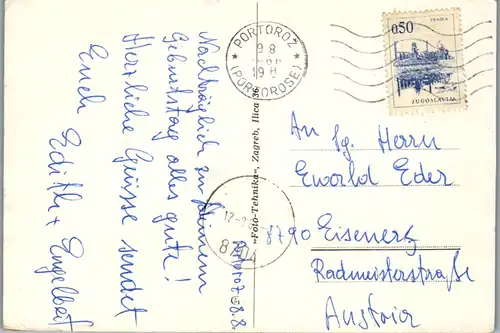 Nachträglich zu Deinem
Geburtstag alles gute!
Herzliche Grüsse sendet
Euch Edith + Engelbert
Portorož 8.8.
"Foto-Tehnika", Zagreb, Ilica 36
PORTOROŽ
(PORTOROSE)
0,50
ZENICA
JUGOSLAVIJA
An Sg. Herrn
Ewald Eder
8790 Eisenerz
Radmeisterstraße
Austria